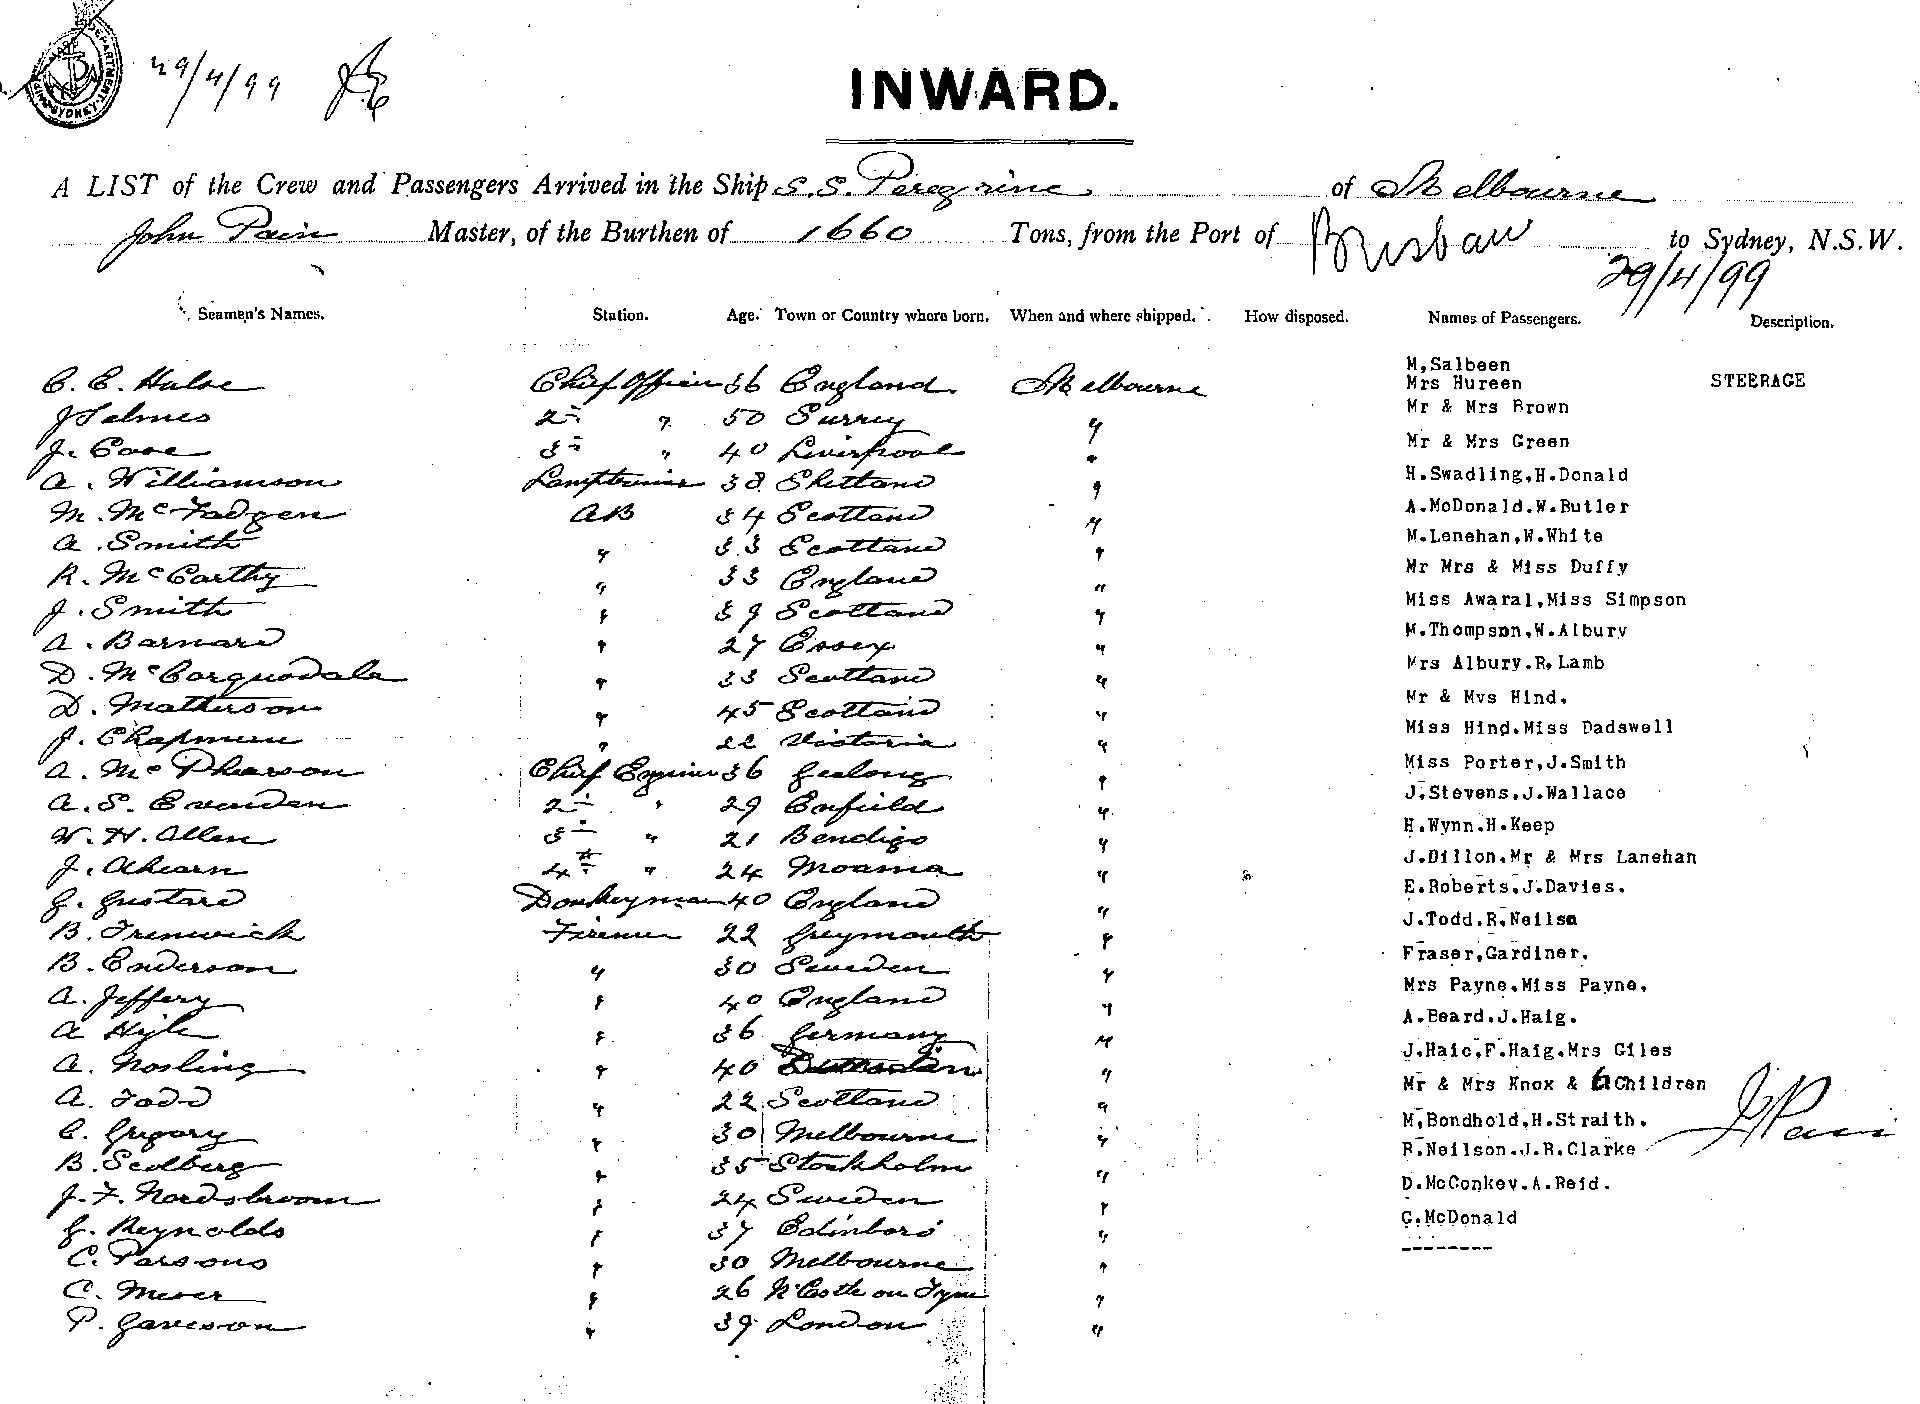 29/4/99
INWARD.
A LIST of the Crew and Passengers Arrived in the Ship S.S. Peregrine of Melbourne
John Pain Master, of the Burthen of 1660 Tons, from the Port of Brisbane to Sydney, N.S.W.
29/4/99
Seamen's Names. Station. Age. Town or Country where born. When and where shipped. How disposed. Names of Passengers. Description.
M,Salbeen
C. E. Hulse Chief Officer 36 England Melbourne Mrs Hureen STEERAGE
J Selmes 2nd " 50 Surrey " Mr & Mrs Brown
J. Case 3rd " 40 Liverpool " Mr & Mrs Green
A. Williamson Lamptrimmer 38 Shetland " H.Swadling,H.Donald
M. McFadgen AB 34 Scotland " A.McDonald.W.Butler
A. Smith " 33 Scotland " M.Lenehan,W.White
R. McCarthy " 33 England " Mr Mrs & Miss Duffy
J. Smith " 39 Scotland " Miss Awaral,Miss Simpson
A. Barnard " 27 Essex " M.Thompson,W.Albury
D. McCorquodale " 33 Scotland " Mrs Albury.R.Lamb
D. Matherson " 45 Scotland " Mr & Mvs Hind.
J. Chapman " 22 Victoria " Miss Hind.Miss Dadswell
A. McPhearson Chief Engineer 36 Geelong " Miss Porter,J.Smith
A. S. Evenden 2nd " 29 Enfield " J.Stevens,J.Wallace
W. H. Allen 3rd " 21 Bendigo " H.Wynn.H.Keep
J. Ahearn 4th " 24 Moama " J.Dillon.Mr & Mrs Lanehan
G. Gustard Donkeyman 40 England " E.Roberts.J.Davies.
B. Frenwick Fireman 22 Greymouth " J.Todd.R.Neilsn
B. Enderson " 30 Sweden " Fraser,Gardiner.
A. Jeffery " 40 England " Mrs Payne.Miss Payne.
A Hyle " 36 Germany " A.Beard.J.Haig.
A. Nosling " 40 " J.Haig.F.Haig.Mrs Giles
A. Todd " 22 Scotland " Mr & Mrs Knox & 6 Children
C. Gregory " 30 Melbourne " M.Bondhold,H.Straith.
B. Sedberg " 35 Stockholm " R.Neilson.J.R.Clarke J Pain
J. F. Nordsbroom " 24 Sweden " D.McConkey.A.Reid.
G. Reynolds " 37 Edinboro' " C.McDonald
C. Parsons " 30 Melbourne " --------
C. Meser " 26 N'Castle on Tyne "
P. Gaveson " 39 London "